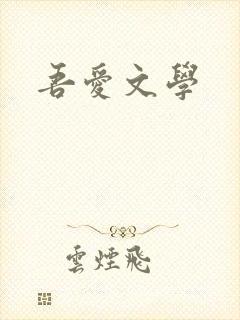 吾愛文學
雲煙飛